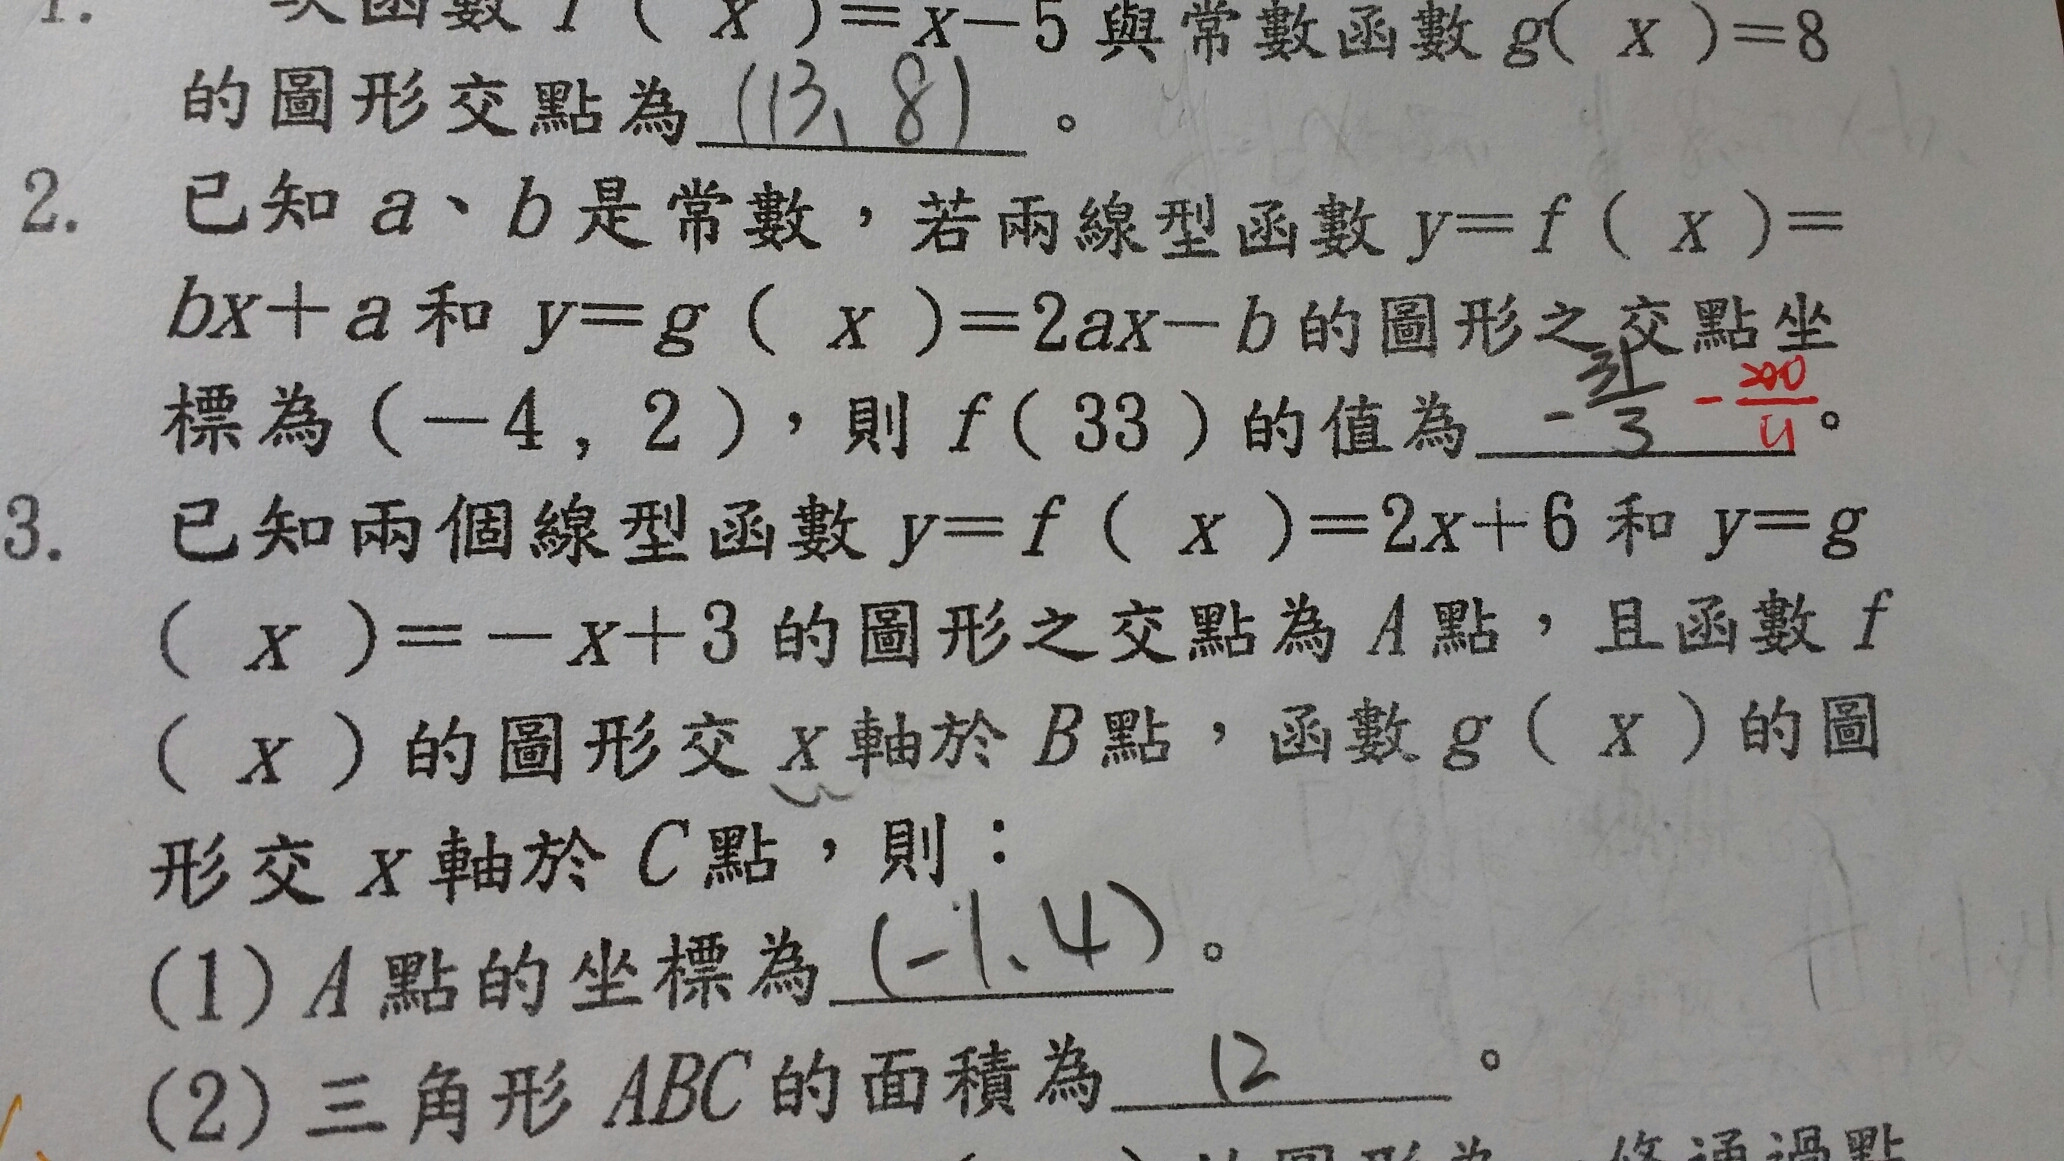 1. 一次函數 f ( x )=x−5 與常數函數 g( x )=8
的圖形交點為 (13、8) 。
2. 已知 a、b 是常數，若兩線型函數 y=f ( x )=
bx+a 和 y=g ( x )=2ax−b 的圖形之交點坐
標為 (−4 , 2 )，則 f ( 33 ) 的值為 。
3. 已知兩個線型函數 y=f ( x )=2x+6 和 y=g
( x )=−x+3 的圖形之交點為 A 點，且函數 f
( x ) 的圖形交 x 軸於 B 點，函數 g ( x ) 的圖
形交 x 軸於 C 點，則：
(1) A 點的坐標為 (-1、4) 。
(2) 三角形 ABC 的面積為 12 。